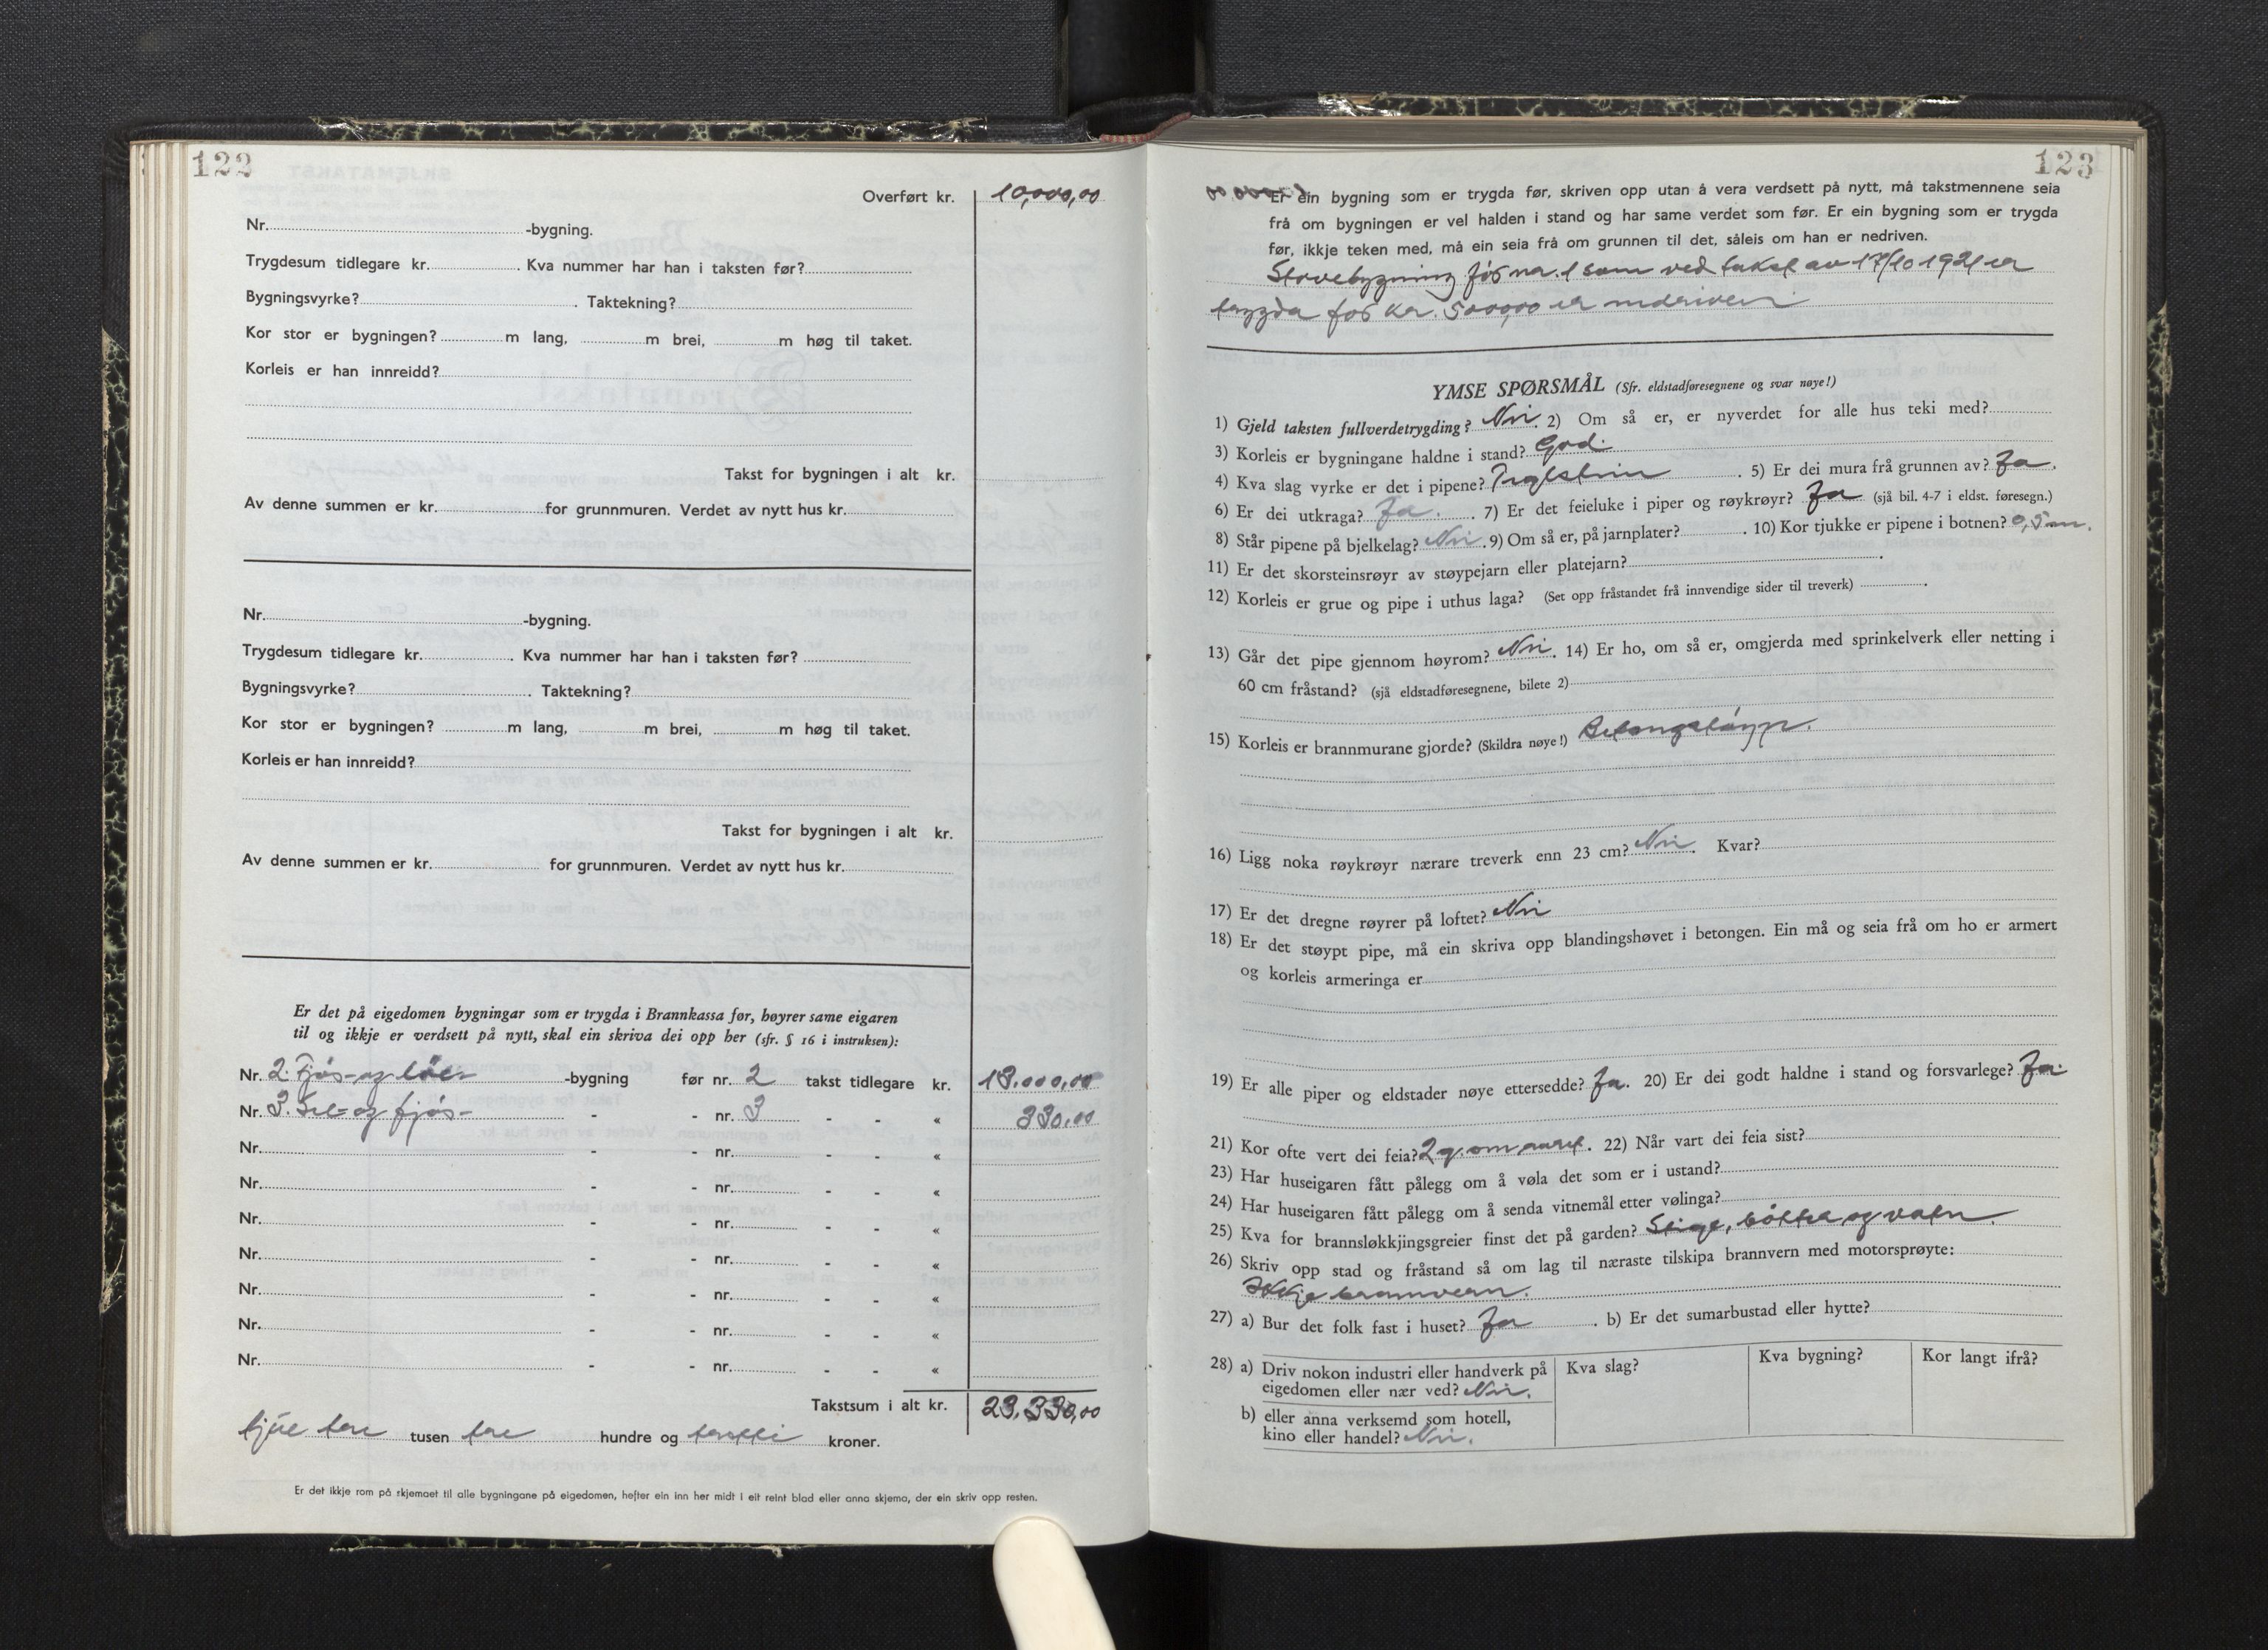 122
Overført kr. 10,000,00
Nr. -bygning.
Trygdesum tidlegare kr. . Kva nummer har han i taksten før?
Bygningsvyrke? . Taktekning?
Kor stor er bygningen? m lang, m brei, m høg til taket.
Korleis er han innreidd?
Takst for bygningen i alt kr.
Av denne summen er kr. for grunnmuren. Verdet av nytt hus kr.
Nr. -bygning.
Trygdesum tidlegare kr. . Kva nummer har han i taksten før?
Bygningsvyrke? . Taktekning?
Kor stor er bygningen? m lang, m brei, m høg til taket.
Korleis er han innreidd?
Takst for bygningen i alt kr.
Av denne summen er kr. for grunnmuren. Verdet av nytt hus kr.
Er det på eigedomen bygningar som er trygda i Brannkassa før, høyrer same eigaren
til og ikkje er verdsett på nytt, skal ein skriva dei opp her (sfr. § 16 i instruksen):
Nr. 2. Fjøs- og løe- -bygning før nr. 2 takst tidlegare kr. 13.000,00
Nr. 3. Sel- og fjøs- - - nr. 3 - - « 330,00
Nr. - - nr. - - «
Nr. - - nr. - - «
Nr. - - nr. - - «
Nr. - - nr. - - «
Nr. - - nr. - - «
Nr. - - nr. - - «
Nr. - - nr. - - «
Takstsum i alt kr. 23.330,00
tjue tre tusen tre hundre og tretti kroner.
Er det ikkje rom på skjemaet til alle bygningane på eigedomen, hefter ein inn her midt i eit reint blad eller anna skjema, der ein skriv opp resten.
123
Er ein bygning som er trygda før, skriven opp utan å vera verdsett på nytt, må takstmennene seia
frå om bygningen er vel halden i stand og har same verdet som før. Er ein bygning som er trygda
før, ikkje teken med, må ein seia frå om grunnen til det, såleis om han er nedriven.
Stovebygning før nr. 1 som ved takst av 17/10 1921 er
trygda for kr. 5000,00 er nedriven
YMSE SPØRSMÅL (Sfr. eldstadføresegnene og svar nøye!)
1) Gjeld taksten fullverdetrygding? Nei. 2) Om så er, er nyverdet for alle hus teki med?
3) Korleis er bygningane haldne i stand? God.
4) Kva slag vyrke er det i pipene? Teglstein . 5) Er dei mura frå grunnen av? Ja.
6) Er dei utkraga? Ja. . 7) Er det feieluke i piper og røykrøyr? Ja (sjå bil. 4-7 i eldst. føresegn.)
8) Står pipene på bjelkelag? Nei. 9) Om så er, på jarnplater? . 10) Kor tjukke er pipene i botnen? 0,5 m.
11) Er det skorsteinsrøyr av støypejarn eller platejarn? .
12) Korleis er grue og pipe i uthus laga? (Set opp fråstandet frå innvendige sider til treverk) .
13) Går det pipe gjennom høyrom? Nei. 14) Er ho, om så er, omgjerda med sprinkelverk eller netting i
60 cm fråstand? (sjå eldstadføresegnene, bilete 2)
15) Korleis er brannmurane gjorde? (Skildra nøye!)
16) Ligg noka røykrøyr nærare treverk enn 23 cm? Nei. Kvar?
17) Er det dregne røyrer på loftet? Nei
18) Er det støypt pipe, må ein skriva opp blandingshøvet i betongen. Ein må og seia frå om ho er armert
og korleis armeringa er
19) Er alle piper og eldstader nøye ettersedde? Ja. 20) Er dei godt haldne i stand og forsvarlege? Ja.
21) Kor ofte vert dei feia? 2 g. om aaret. 22) Når vart dei feia sist?
23) Har huseigaren fått pålegg om å vøla det som er i ustand?
24) Har huseigaren fått pålegg om å senda vitnemål etter vølinga?
25) Kva for brannsløkkjingsgreier finst det på garden? Stige, bøtter og vatn.
26) Skriv opp stad og fråstand så om lag til næraste tilskipa brannvern med motorsprøyte:
Ikkje brannvern.
27) a) Bur det folk fast i huset? Ja . b) Er det sumarbustad eller hytte?
28) a) Driv nokon industri eller handverk på eigedomen eller nær ved? Nei.
Kva slag?
Kva bygning?
Kor langt ifrå?
b) eller anna verksemd som hotell,
kino eller handel? Nei.